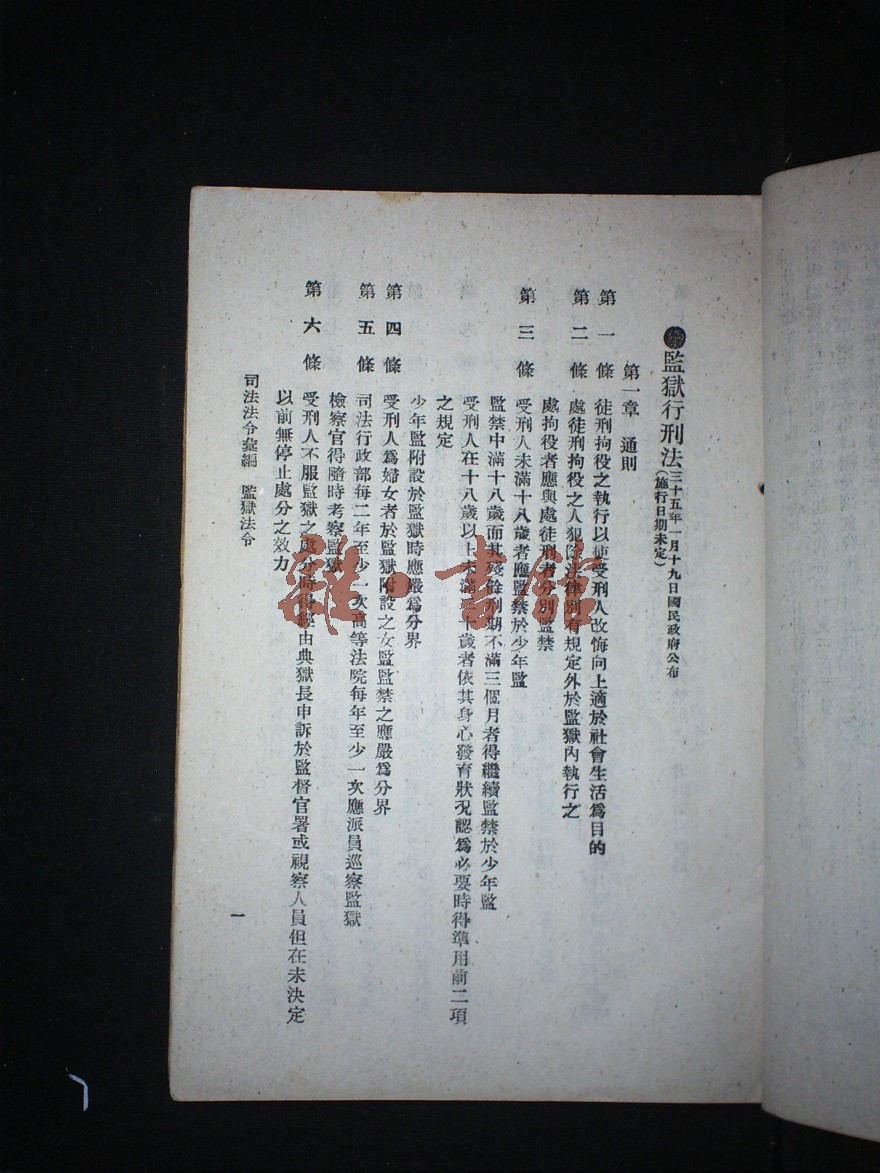 監獄行刑法 三十五年一月十九日國民政府公布
(施行日期未定)
第一章 通則
第一條 徒刑拘役之執行以使受刑人改悔向上適於社會生活爲目的
第二條 處徒刑拘役之人犯除法律別有規定外於監獄內執行之
處拘役者應與處徒刑者分別監禁
第三條 受刑人未滿十八歲者應監禁於少年監
監禁中滿十八歲而其殘餘刑期不滿三個月者得繼續監禁於少年監
受刑人在十八歲以上未滿二十歲者依其身心發育狀況認爲必要時得準用前二項
之規定
少年監附設於監獄時應嚴爲分界
第四條 受刑人爲婦女者於監獄附設之女監監禁之應嚴爲分界
第五條 司法行政部每二年至少一次高等法院每年至少一次應派員巡察監獄
檢察官得隨時考察監獄
第六條 受刑人不服監獄之處分時得經由典獄長申訴於監督官署或視察人員但在未決定
以前無停止處分之效力
司法法令彙編 監獄法令
一
雜·書館